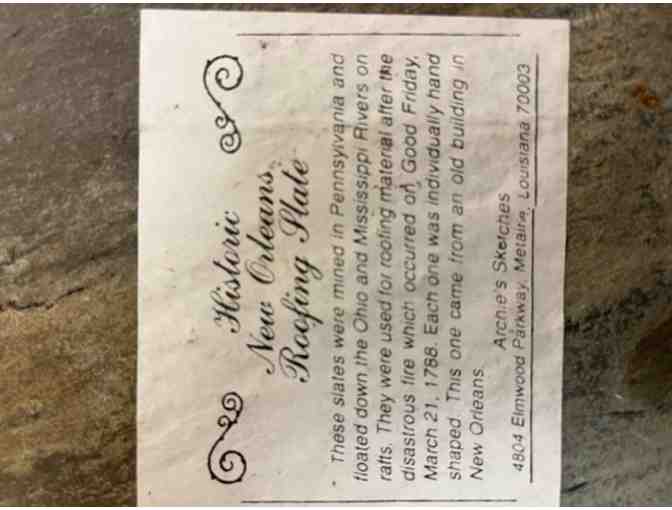 Historic
New Orleans
Roofing Slate
These slates were mined in Pennsylvania and
floated down the Ohio and Mississippi Rivers on
rafts. They were used for roofing material after the
disastrous fire which occurred on Good Friday,
March 21, 1788. Each one was individually hand
shaped. This one came from an old building in
New Orleans.
Archie's Sketches
4804 Elmwood Parkway, Metairie, Louisiana 70003